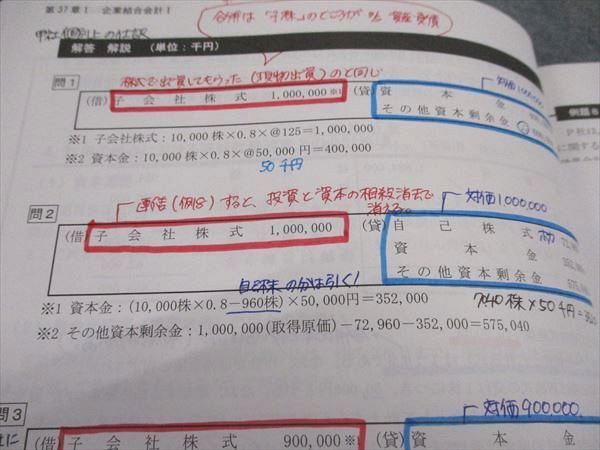 第37章Ⅰ 企業結合会計Ⅰ
合併は「子株」のところが% 資産 負債
解答 解説 (単位：千円)
例題8
問1
株式で出資してもらった(現物出資)のと同じ
対価1,000,000
(借) 子会社株式 1,000,000 ※1 (貸) 資本金
その他資本剰余金
※1 子会社株式：10,000株×0.8×@125＝1,000,000
※2 資本金：10,000株×0.8×@50,000円＝400,000
50千円
P社は、
に関する
連結(個⊕)すると、投資と資本の相殺消去で
消える。
対価1,000,000
問2
(借) 子会社株式 1,000,000 (貸) 自己株式
資本金
その他資本剰余金
自己株の分は引く!
※1 資本金：(10,000株×0.8－960株)×50,000円＝352,000
7040株×50千円＝
※2 その他資本剰余金：1,000,000(取得原価)－72,960－352,000＝575,040
問3
対価900,000
(借) 子会社株式 900,000 ※1 (貸) 資本金